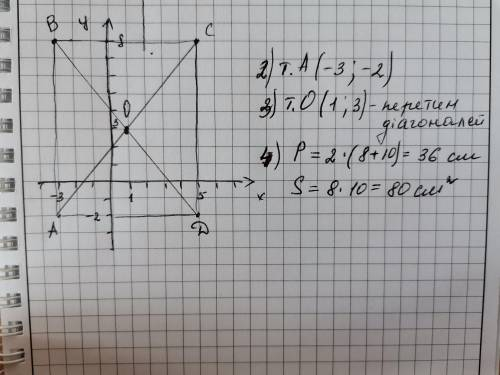 B y 8 C
O
3
-3 1 5 x
A -2 D
2) т. A (-3; -2)
3) т. O (1; 3) - перетин
діагоналей
4) P = 2 · (8+10) = 36 см
S = 8 · 10 = 80 см²